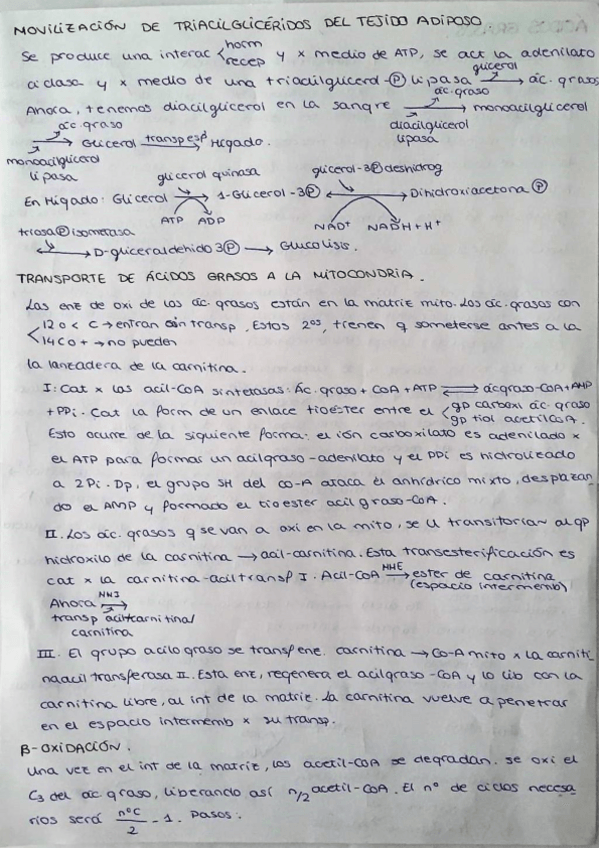 MOVILIZACIÓN DE TRIACILGLICÉRIDOS DEL TEJIDO ADIPOSO
Se produce una interac < horm recep y x medio de ATP, se act la adenilato
ciclasa y x medio de una triacilglicerol-Ⓟ lipasa → glicerol ác. grasos
Ahora, tenemos diacilglicerol en la sangre → ác. graso monoacilglicerol
diacilglicerol lipasa
→ ác. graso Glicerol transp esp → Hígado.
monoacilglicerol lipasa
glicerol quinasa glicerol-3Ⓟ deshidrog
En Hígado: Glicerol → 1-Glicerol-3Ⓟ ↔ Dihidroxiacetona Ⓟ
ATP ADP NAD⁺ NADH+H⁺
triosaⓅisomerasa
↔ D-gliceraldehido 3Ⓟ → Glucolisis.
TRANSPORTE DE ÁCIDOS GRASOS A LA MITOCONDRIA.
Las enz de oxi de los ác. grasos están en la matriz mito. Los ác. grasos con
< 12 o < C → entran sin transp. Estos 2ºs, tienen q someterse antes a la
14C o + → no pueden
la lanzadera de la carnitina.
I: Cat x las acil-CoA sintetasas: Ác. graso + CoA + ATP ⇌ ácgraso-CoA+AMP
+PPi. Cat la form de un enlace tioéster entre el < gp carboxi ác. graso
gp tiol acetilCoA.
Esto ocurre de la siguiente forma: el ión carboxilato es adenilado x
el ATP para formas un acilgraso-adenilato y el PPi es hidrolizado
a 2Pi. Dp, el grupo SH del co-A ataca el anhídrico mixto, desplazan
do el AMP y formado el tioester acil graso-CoA.
II. Los ác. grasos q se van a oxi en la mito, se U transitoriam al gp
hidroxilo de la carnitina → acil-carnitina. Esta transesterificación es
cat x la carnitina-aciltransf I. Acil-CoA MME → ester de carnitina
(espacio intermemb)
Ahora MMI →
transp acil-carnitina/
carnitina
III. El grupo acilo graso se transf ene. carnitina → Co-A mito x la carniti
naacil transferasa II. Esta enz, regenera el acilgraso-CoA y lo lib con la
carnitina libre, al int de la matriz. La carnitina vuelve a penetrar
en el espacio intermemb x su transp.
β-OXIDACIÓN.
Una vez en el int de la matriz, los acetil-COA se degradan. Se oxi el
C3 del ác graso, liberando así n/2 acetil-CoA. El nº de ciclos necesa
rios será nºC/2 - 1. Pasos: